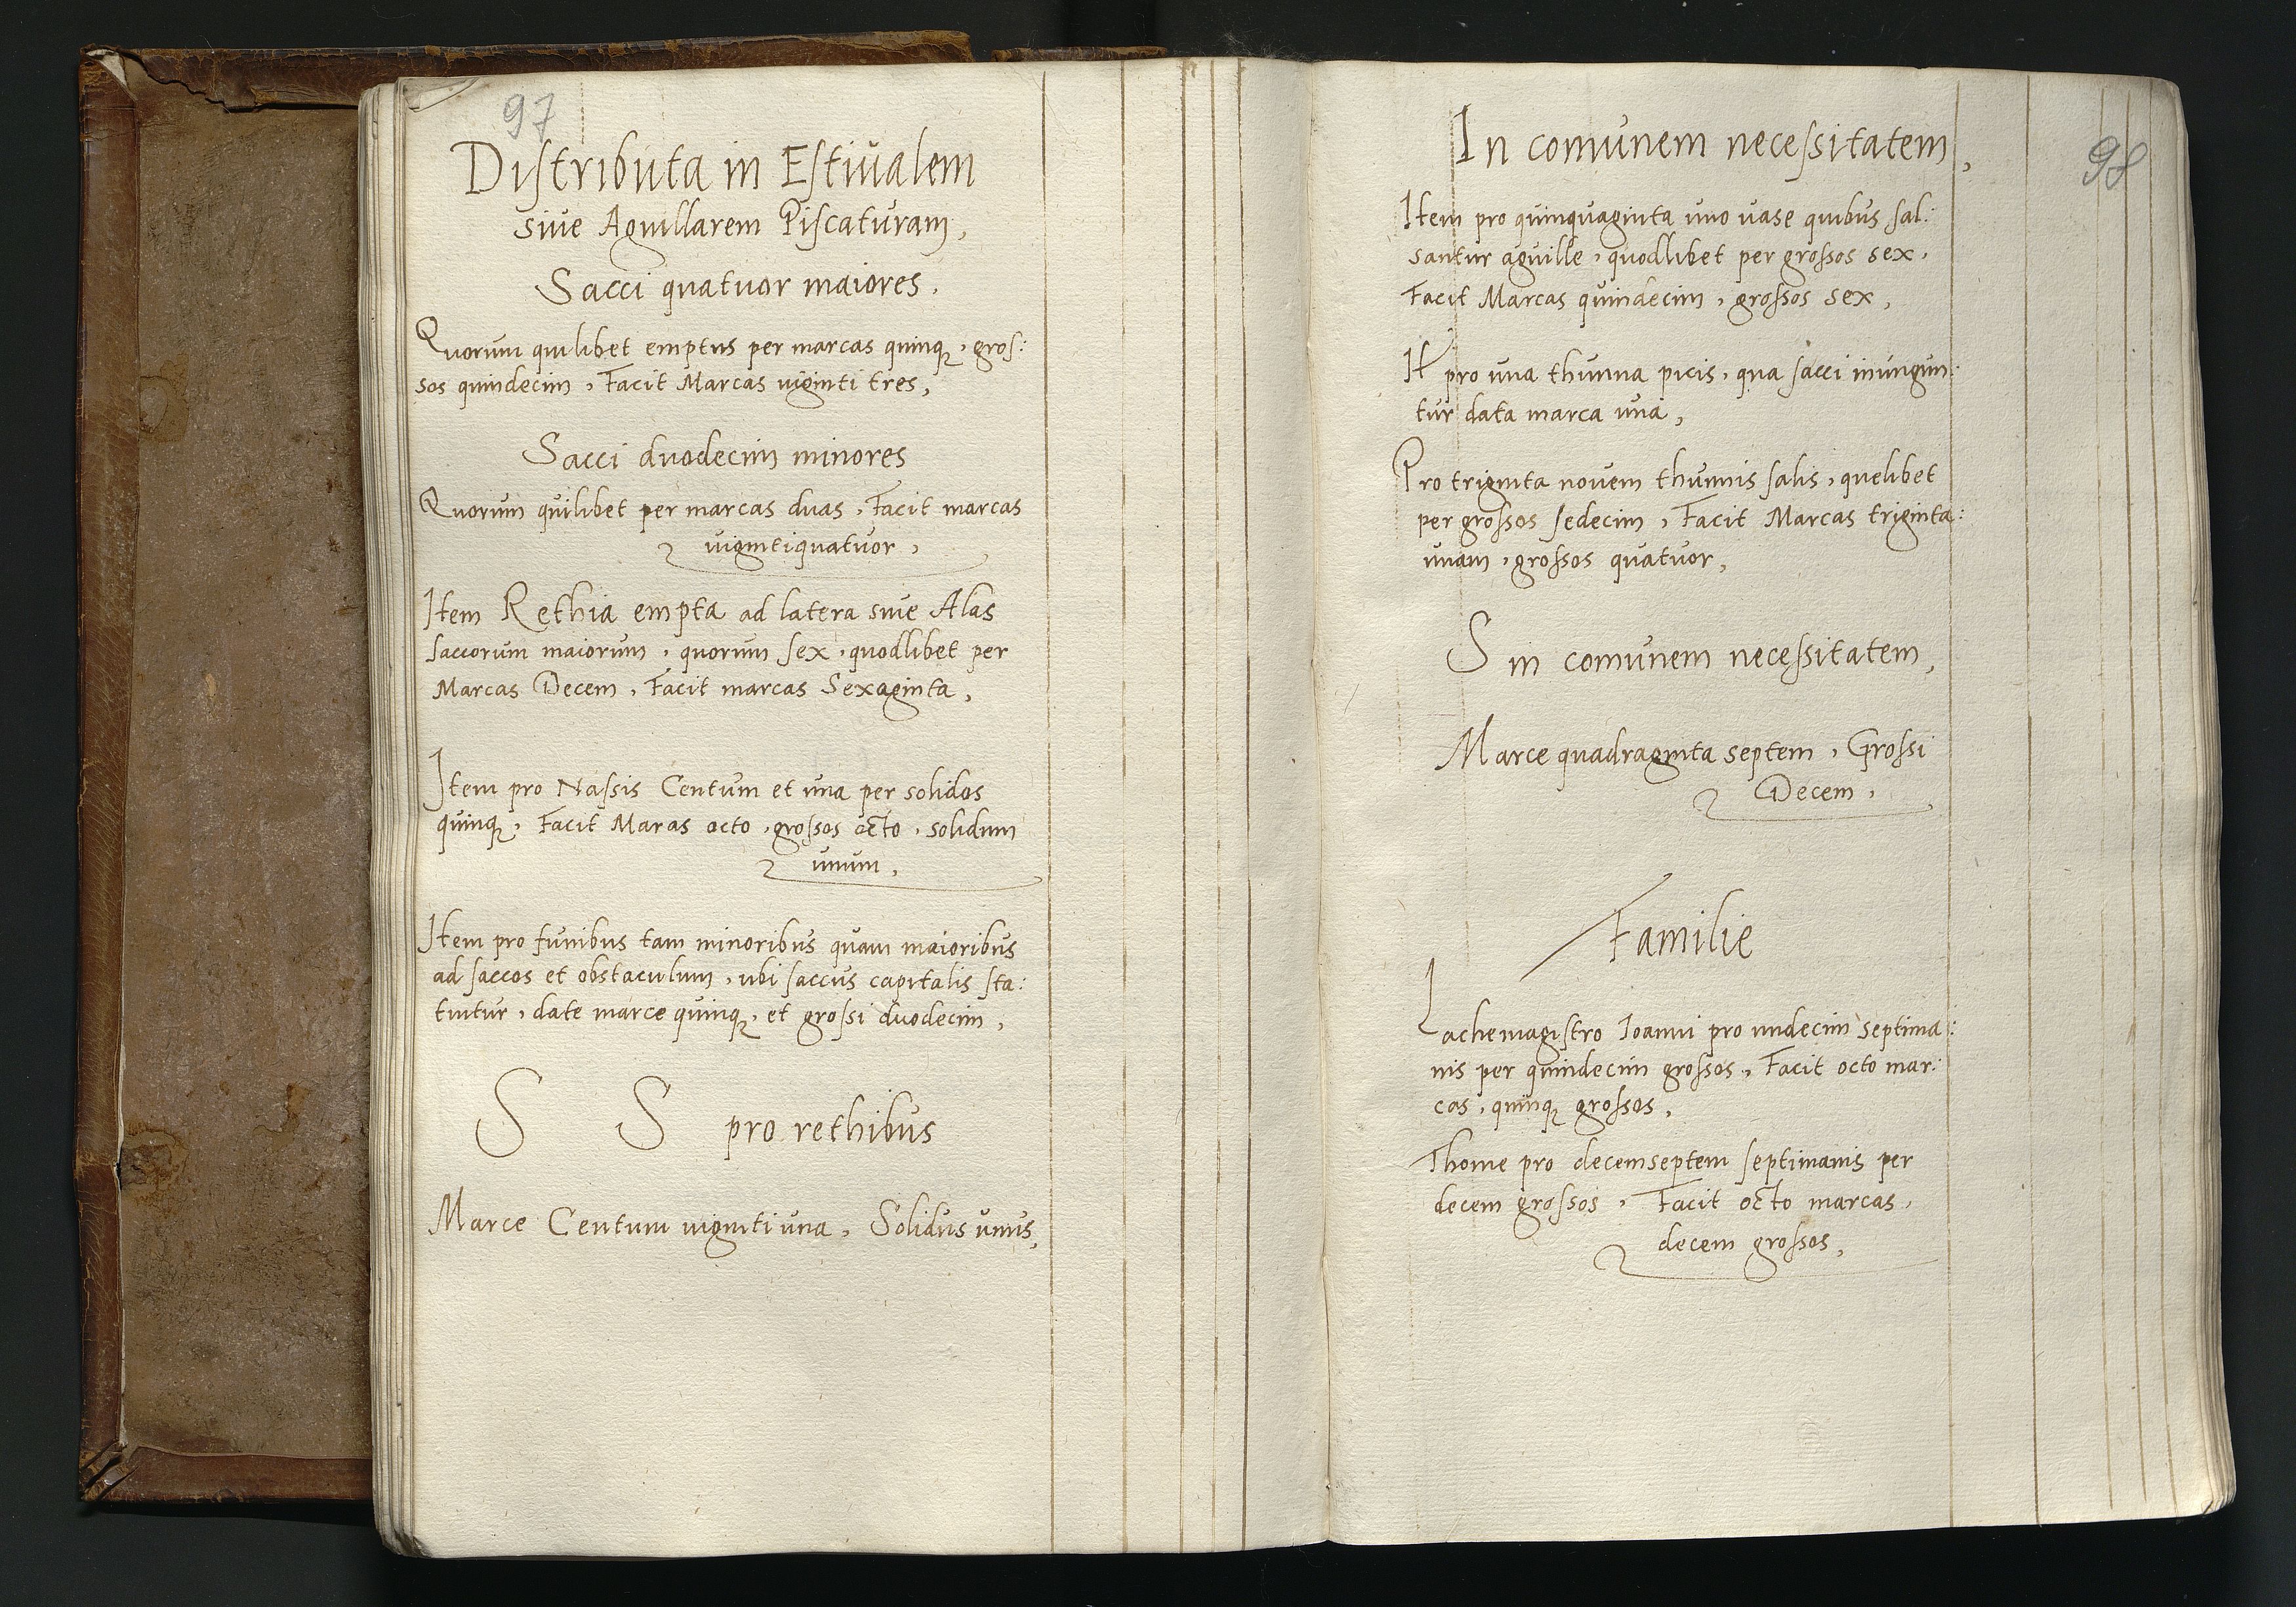 97
Distributa in Estiualem
siue Aguillarem Piscaturam,
Sacci quatuor maiores.
Quorum quilibet emptus per marcas quinq, gros:
sos quindecim, Facit Marcas uiginti tres,
Sacci duodecim minores
Quorum quilibet per marcas duas, Facit marcas
uigintiquatuor,
Item Rethia empta ad latera siue Alas
saccorum maiorum, quorum sex, quodlibet per
Marcas Decem, Facit marcas Sexaginta,
Item pro Nassis Centum et una per solidos
quinq, Facit Maras octo, grossos octo, solidum
unum,
Item pro funibus tam minoribus quam maioribus
ad saccos et obstaculum, ubi saccus capitalis sta:
tuitur, date marce quinq, et grossi duodecim,
S S pro rethibus
Marce Centum uigintiuna, Solidus unus,
98
In comunem necessitatem,
Item pro quinquaginta uno uase quibus sal:
santur aguille, quodlibet per grossos sex,
Facit Marcas quindecim, grossos sex,
It pro una thunna picis, qua sacci inungun:
tur data marca una,
Pro triginta novem thunnis salis, quelibet
per grossos sedecim, Facit Marcas triginta:
unam, grossos quatuor,
S in comunem necessitatem,
Marce quadraginta septem, Grossi
Decem,
Familie
Lachemagistro Ioanni pro undecim septima:
nis per quindecim grossos, Facit octo mar:
cas, quinq grossos,
Thome pro decemseptem septimanis per
decem grossos, Facit octo marcas,
decem grossos,